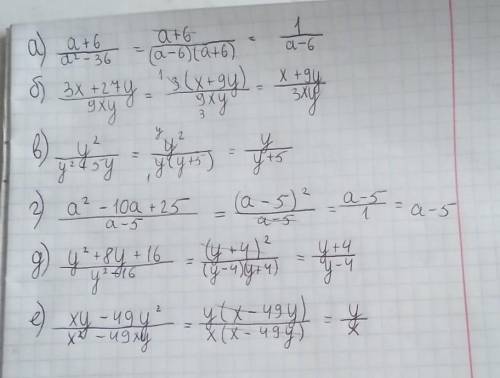 а) a+6 / a² - 36 = a+6 / (a-6)(a+6) = 1 / a-6
б) 3x+27y / 9xy = ¹3(x+9y) / 9xy 3 = x+9y / 3xy
в) y² / y²+5y = y y² / 1 y(y+5) = y / y+5
г) a² - 10a + 25 / a-5 = (a-5)² / a-5 = a-5 / 1 = a-5
д) y² + 8y + 16 / y² - 16 = (y+4)² / (y-4)(y+4) = y+4 / y-4
е) xy - 49y² / x² - 49xy = y(x-49y) / x(x-49y) = y / x